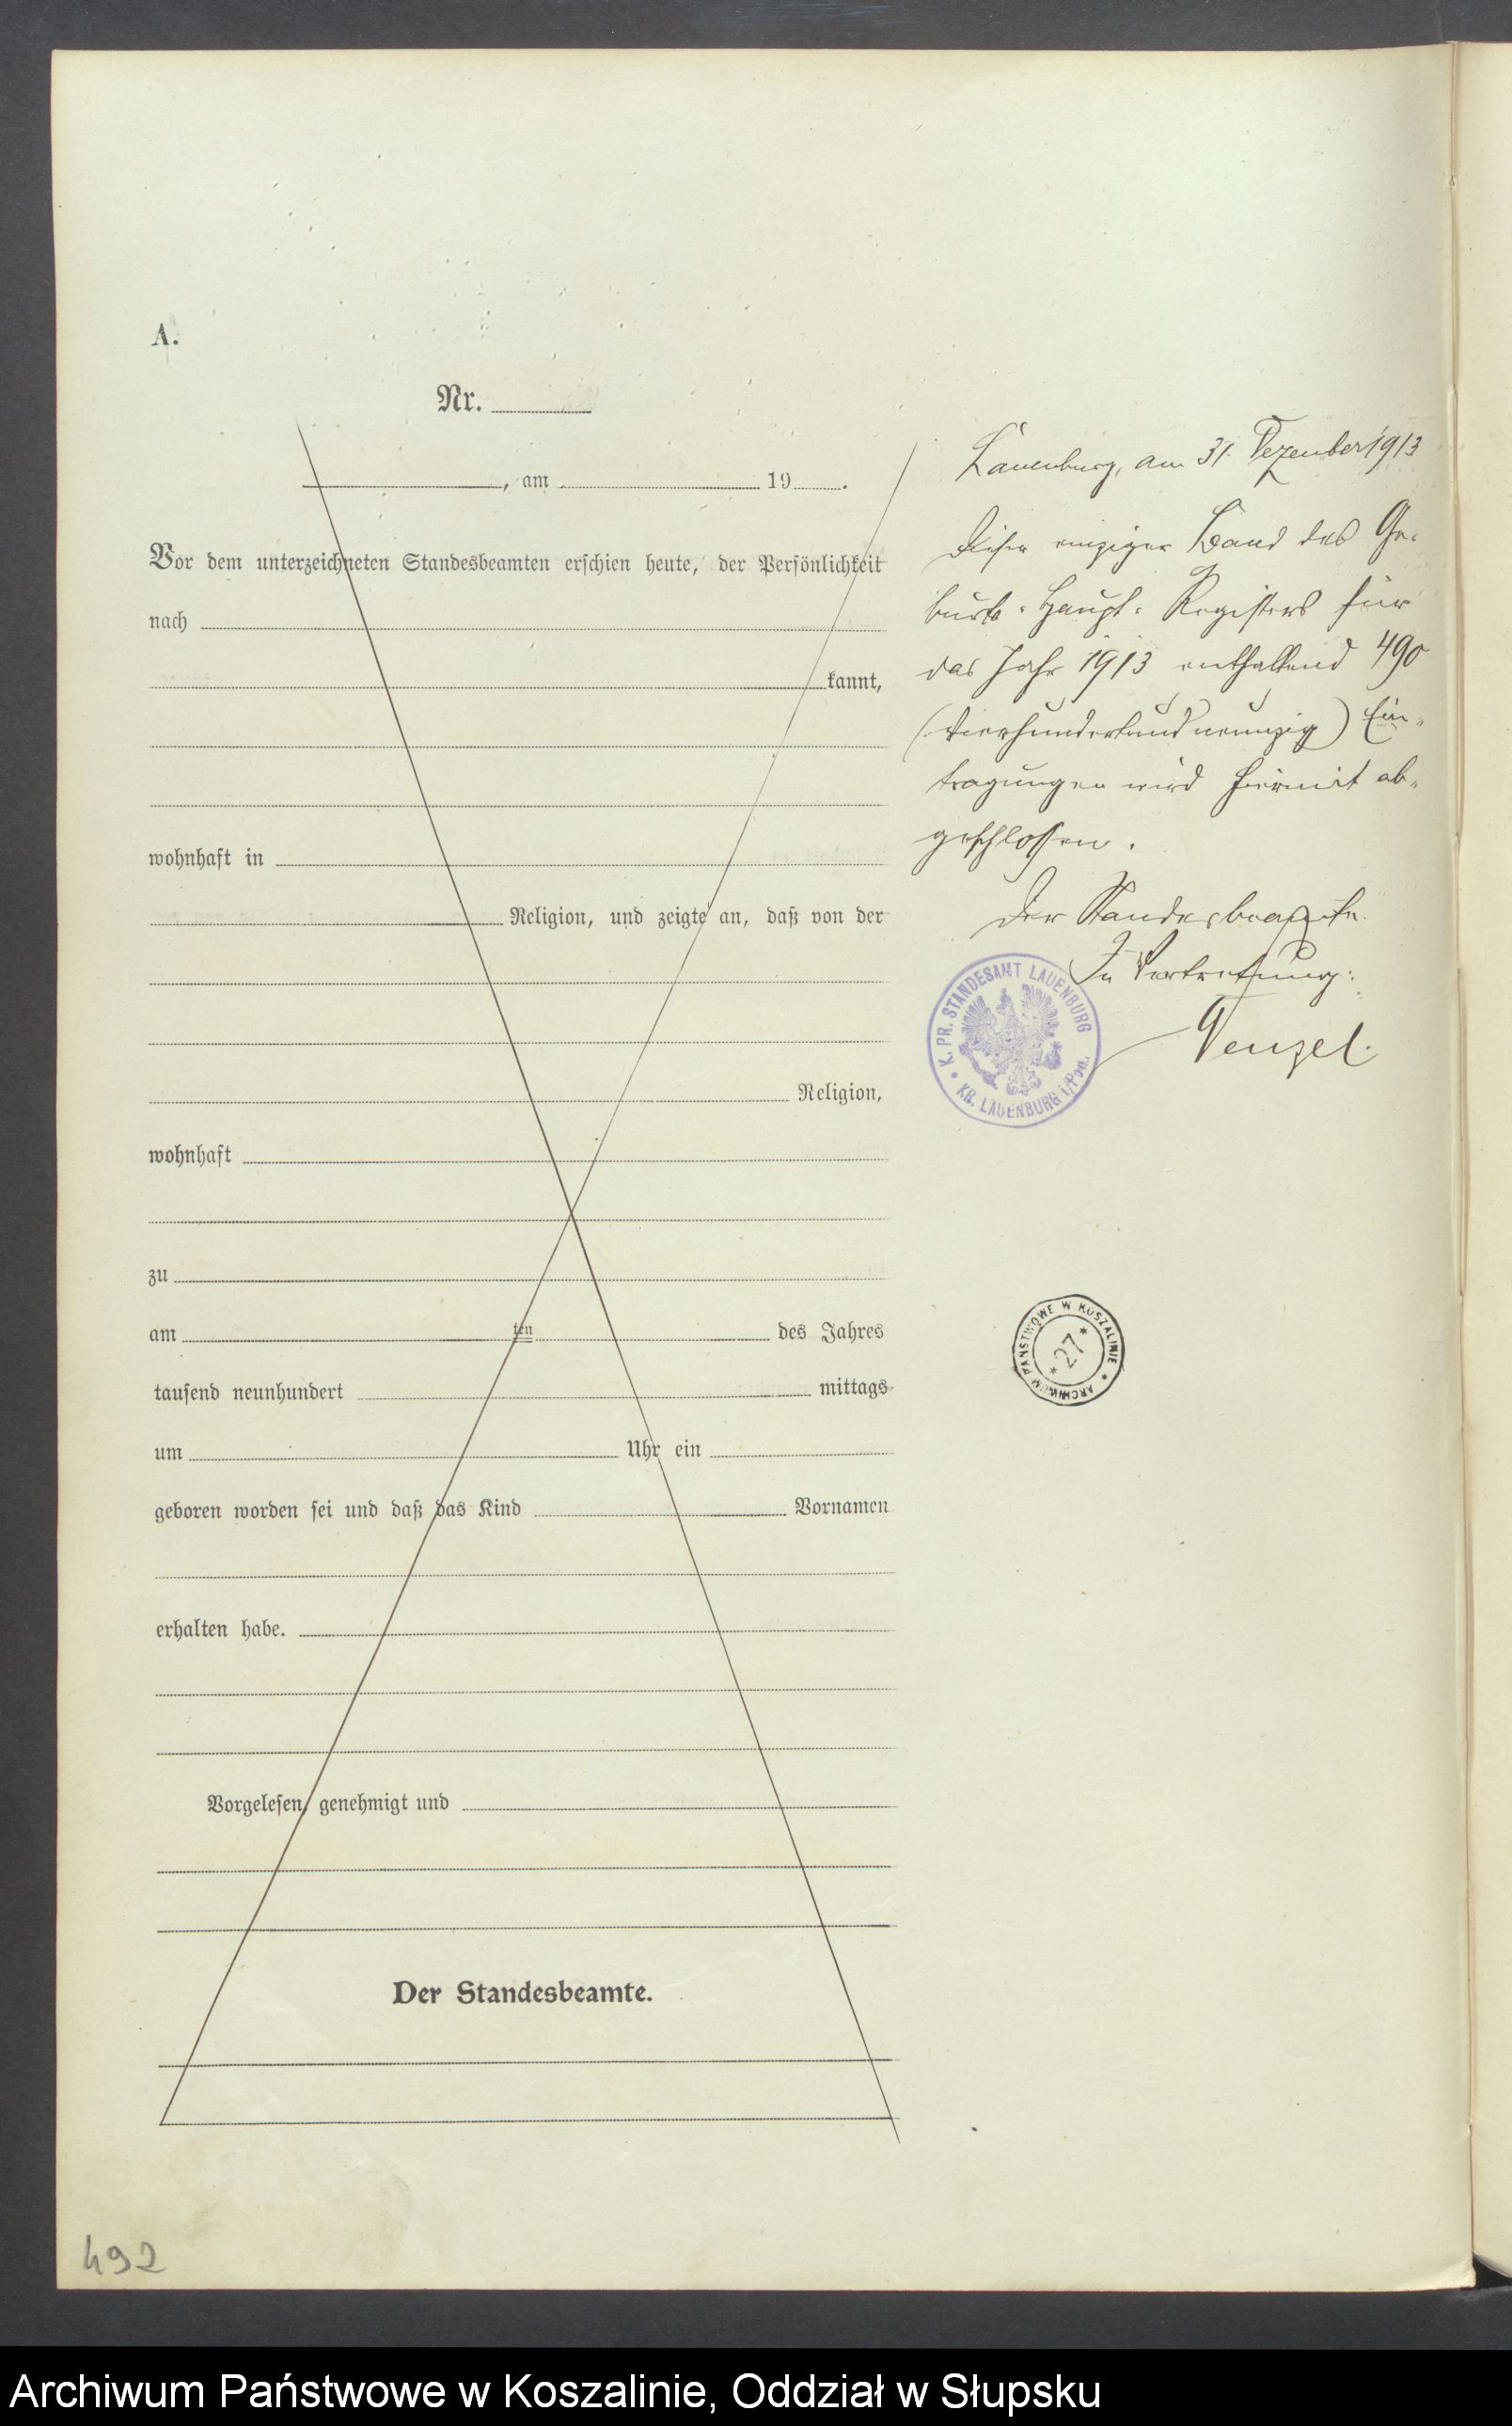 A.
Nr.
, am 19 .
Vor dem unterzeichneten Standesbeamten erschien heute, der Persönlichkeit
nach
kannt,
wohnhaft in
Religion, und zeigte an, daß von der
Religion,
wohnhaft
zu
am ten des Jahres
tausend neunhundert mittags
um Uhr ein
geboren worden sei und daß das Kind Vornamen
erhalten habe.
Vorgelesen, genehmigt und
Der Standesbeamte.
Lauenburg, am 31. Dezember 1913
Dieser einziger Band des Ge-
burts-Haupt-Registers für
das Jahr 1913 enthaltend 490
(vierhundertundneunzig) Ein-
tragungen wird hiermit ab-
geschlossen.
Der Standesbeamte.
In Vertretung:
Wenzel.
K. PR. STANDESAMT LAUENBURG
* KR. LAUENBURG i/Pom.
ARCHIWUM PAŃSTWOWE W KOSZALINIE *
* 27 *
492
Archiwum Państwowe w Koszalinie, Oddział w Słupsku